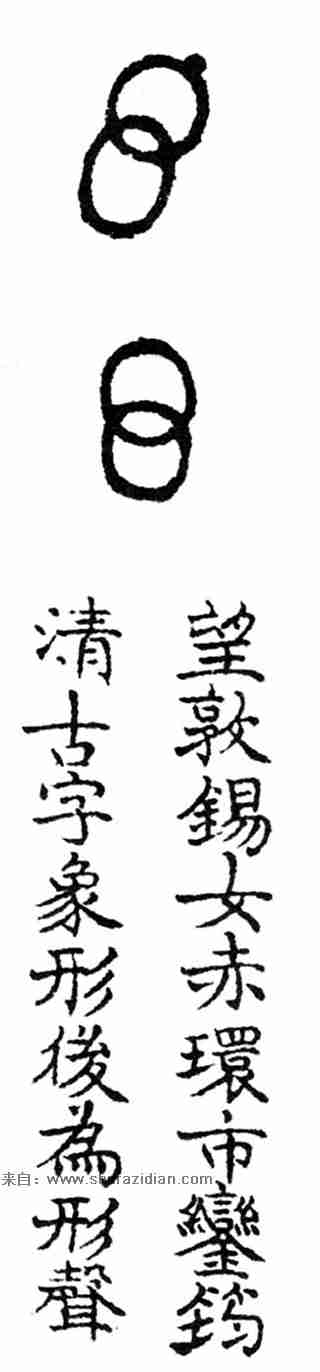 望敦錫女赤環市鑾
清古字象形後為形聲
来自：www.shufazidian.com